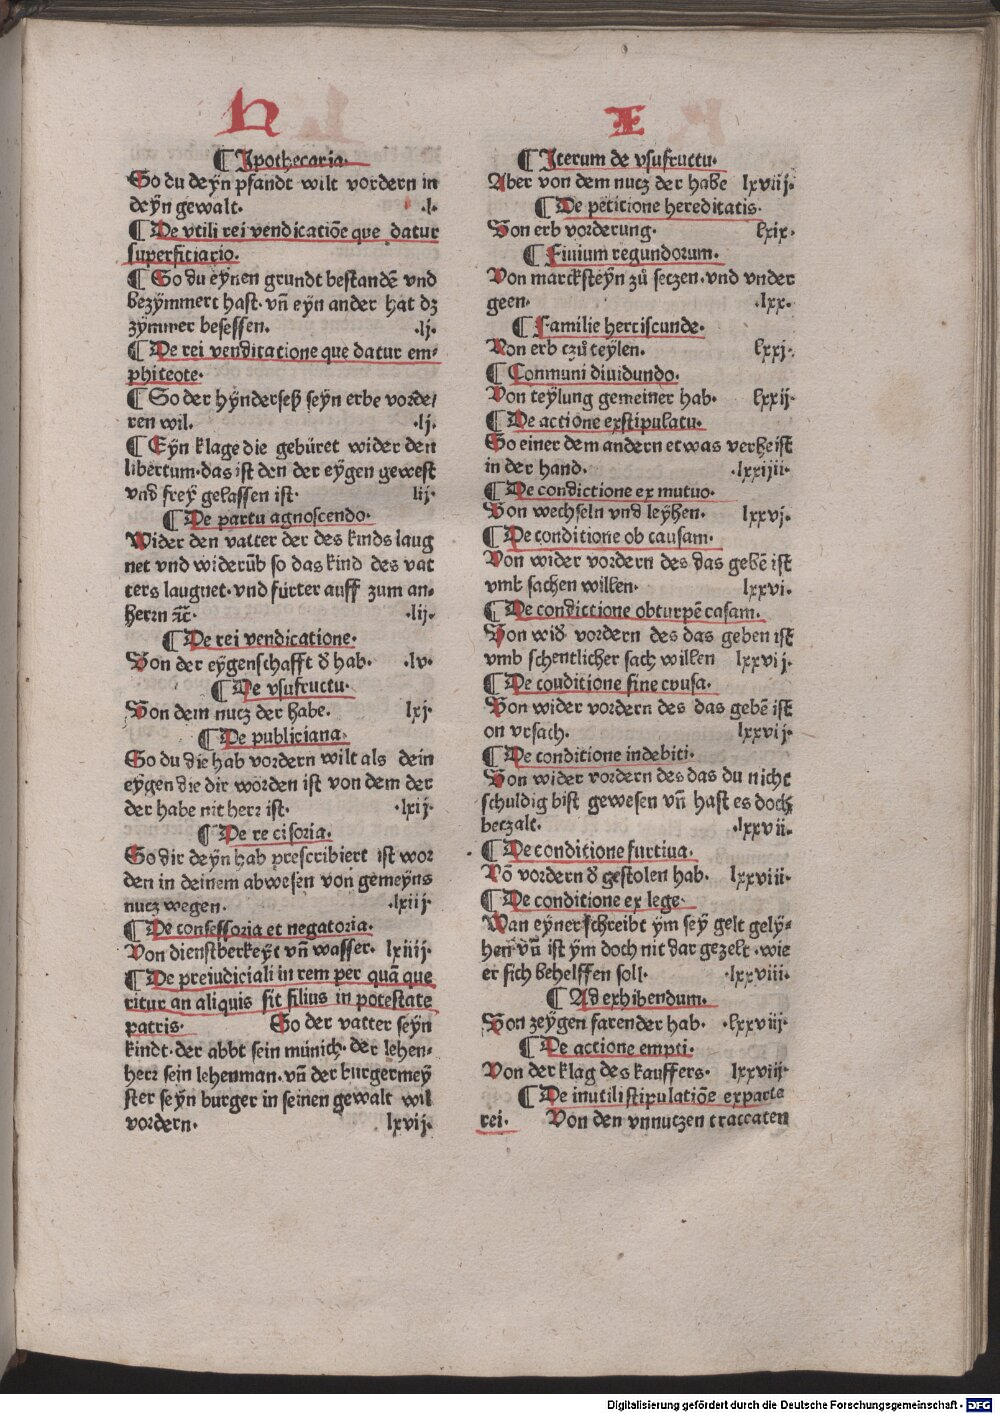 H
¶ Ipothecaria·
So du deÿn pfandt wilt vordern in
deÿn gewalt. ·l·
¶ De vtili rei vendicatiōe que datur
superficiario.
¶ So du eÿnen grundt bestandē vnd
bezÿmmert hast· vn̄ eÿn ander hat dz
zÿmmer besessen. ·lj·
¶ De rei venditatione que datur em⸗
phiteote·
¶ So der hÿnderseß seÿn erbe vorde/
ren wil. ·lj·
¶ Eÿn klage die gebüret wider den
libertum·das ist den der eÿgen gewest
vnd freÿ gelassen ist· lij·
¶ De partu agnoscendo·
Wider den vatter der des kinds laug
net vnd widerüb so das kind des vat
ters laugnet·vnd fürter auff zum an⸗
herrn ⁊c̄· ·lij·
¶ De rei vendicatione·
Von der eÿgenschafft d̕ hab. ·lv·
¶ De vsufructu·
Von dem nucz der habe. lxj·
¶ De publiciana·
So du die hab vordern wilt als dein
eÿgen die dir worden ist von dem der
der habe nit herr ist· ·lxij·
¶ De recisoria·
So dir deÿn hab prescribiert ist wor
den in deinem abwesen von gemeÿns
nucz wegen· ·lxiij·
¶ De confessoria et negatoria·
Von dienstberkeÿt vn̄ wasser· lxiiij·
¶ De preiudiciali in rem per quā que
ritur an aliquis sit filius in potestate
patris· So der vatter seÿn
kindt·der abbt sein münich·der lehen⸗
herr sein lehenman·vn̄ der burgermeÿ
ster seÿn burger in seinen gewalt wil
vordern· lxvij·
I
¶ Iterum de vsufructu·
Aber von dem nucz der habe lxviij·
¶ De petitione hereditatis·
Von erb vorderung· lxix·
¶ Finium regundorum·
Von marcksteÿn zů seczen·vnd vnder
geen· ·lxx·
¶ Familie herciscunde·
Von erb czů teÿlen. lxxj·
¶ Conmuni diuidundo·
Von teÿlung gemeiner hab· lxxij·
¶ De actione exstipulatu·
So einer dem andern etwas verheist
in der hand. ·lxxiiii·
¶ De condictione ex mutuo·
Von wechseln vnd leÿhen. lxxvj·
¶ De conditione ob causam·
Von wider vordern des das gebē ist
vmb sachen willen· lxxvi·
¶ De condictione obturpē casam.
Von wid̕ vordern des das geben ist
vmb schentlicher sach willen lxxvij·
¶ De couditione sine cvusa·
Von wider vordern des das gebē ist
on vrsach· lxxvij·
¶ De conditione indebiti·
Von wider vordern des das du nicht
schuldig bist gewesen vn̄ hast es doch
beczalt· ·lxxvii·
¶ De conditione furtiua·
Vō vordern d̕ gestolen hab. lxxviii·
¶ De conditione ex lege·
Wan eÿner schreibt ÿm seÿ gelt gelÿ⸗
hen vn̄ ist ÿm doch nit dar gezelt·wie
er sich behelffen soll· ·lxxviii·
¶ Ad exhibendum·
Von zeÿgen farender hab· ·lxxviij·
¶ De actione empti·
Von der klag des kauffers· lxxviij·
¶ De inutili stipulatiōe exparte
rei· Von den vnnutzen traccaten
Digitalisierung gefördert durch die Deutsche Forschungsgemeinschaft - DFG